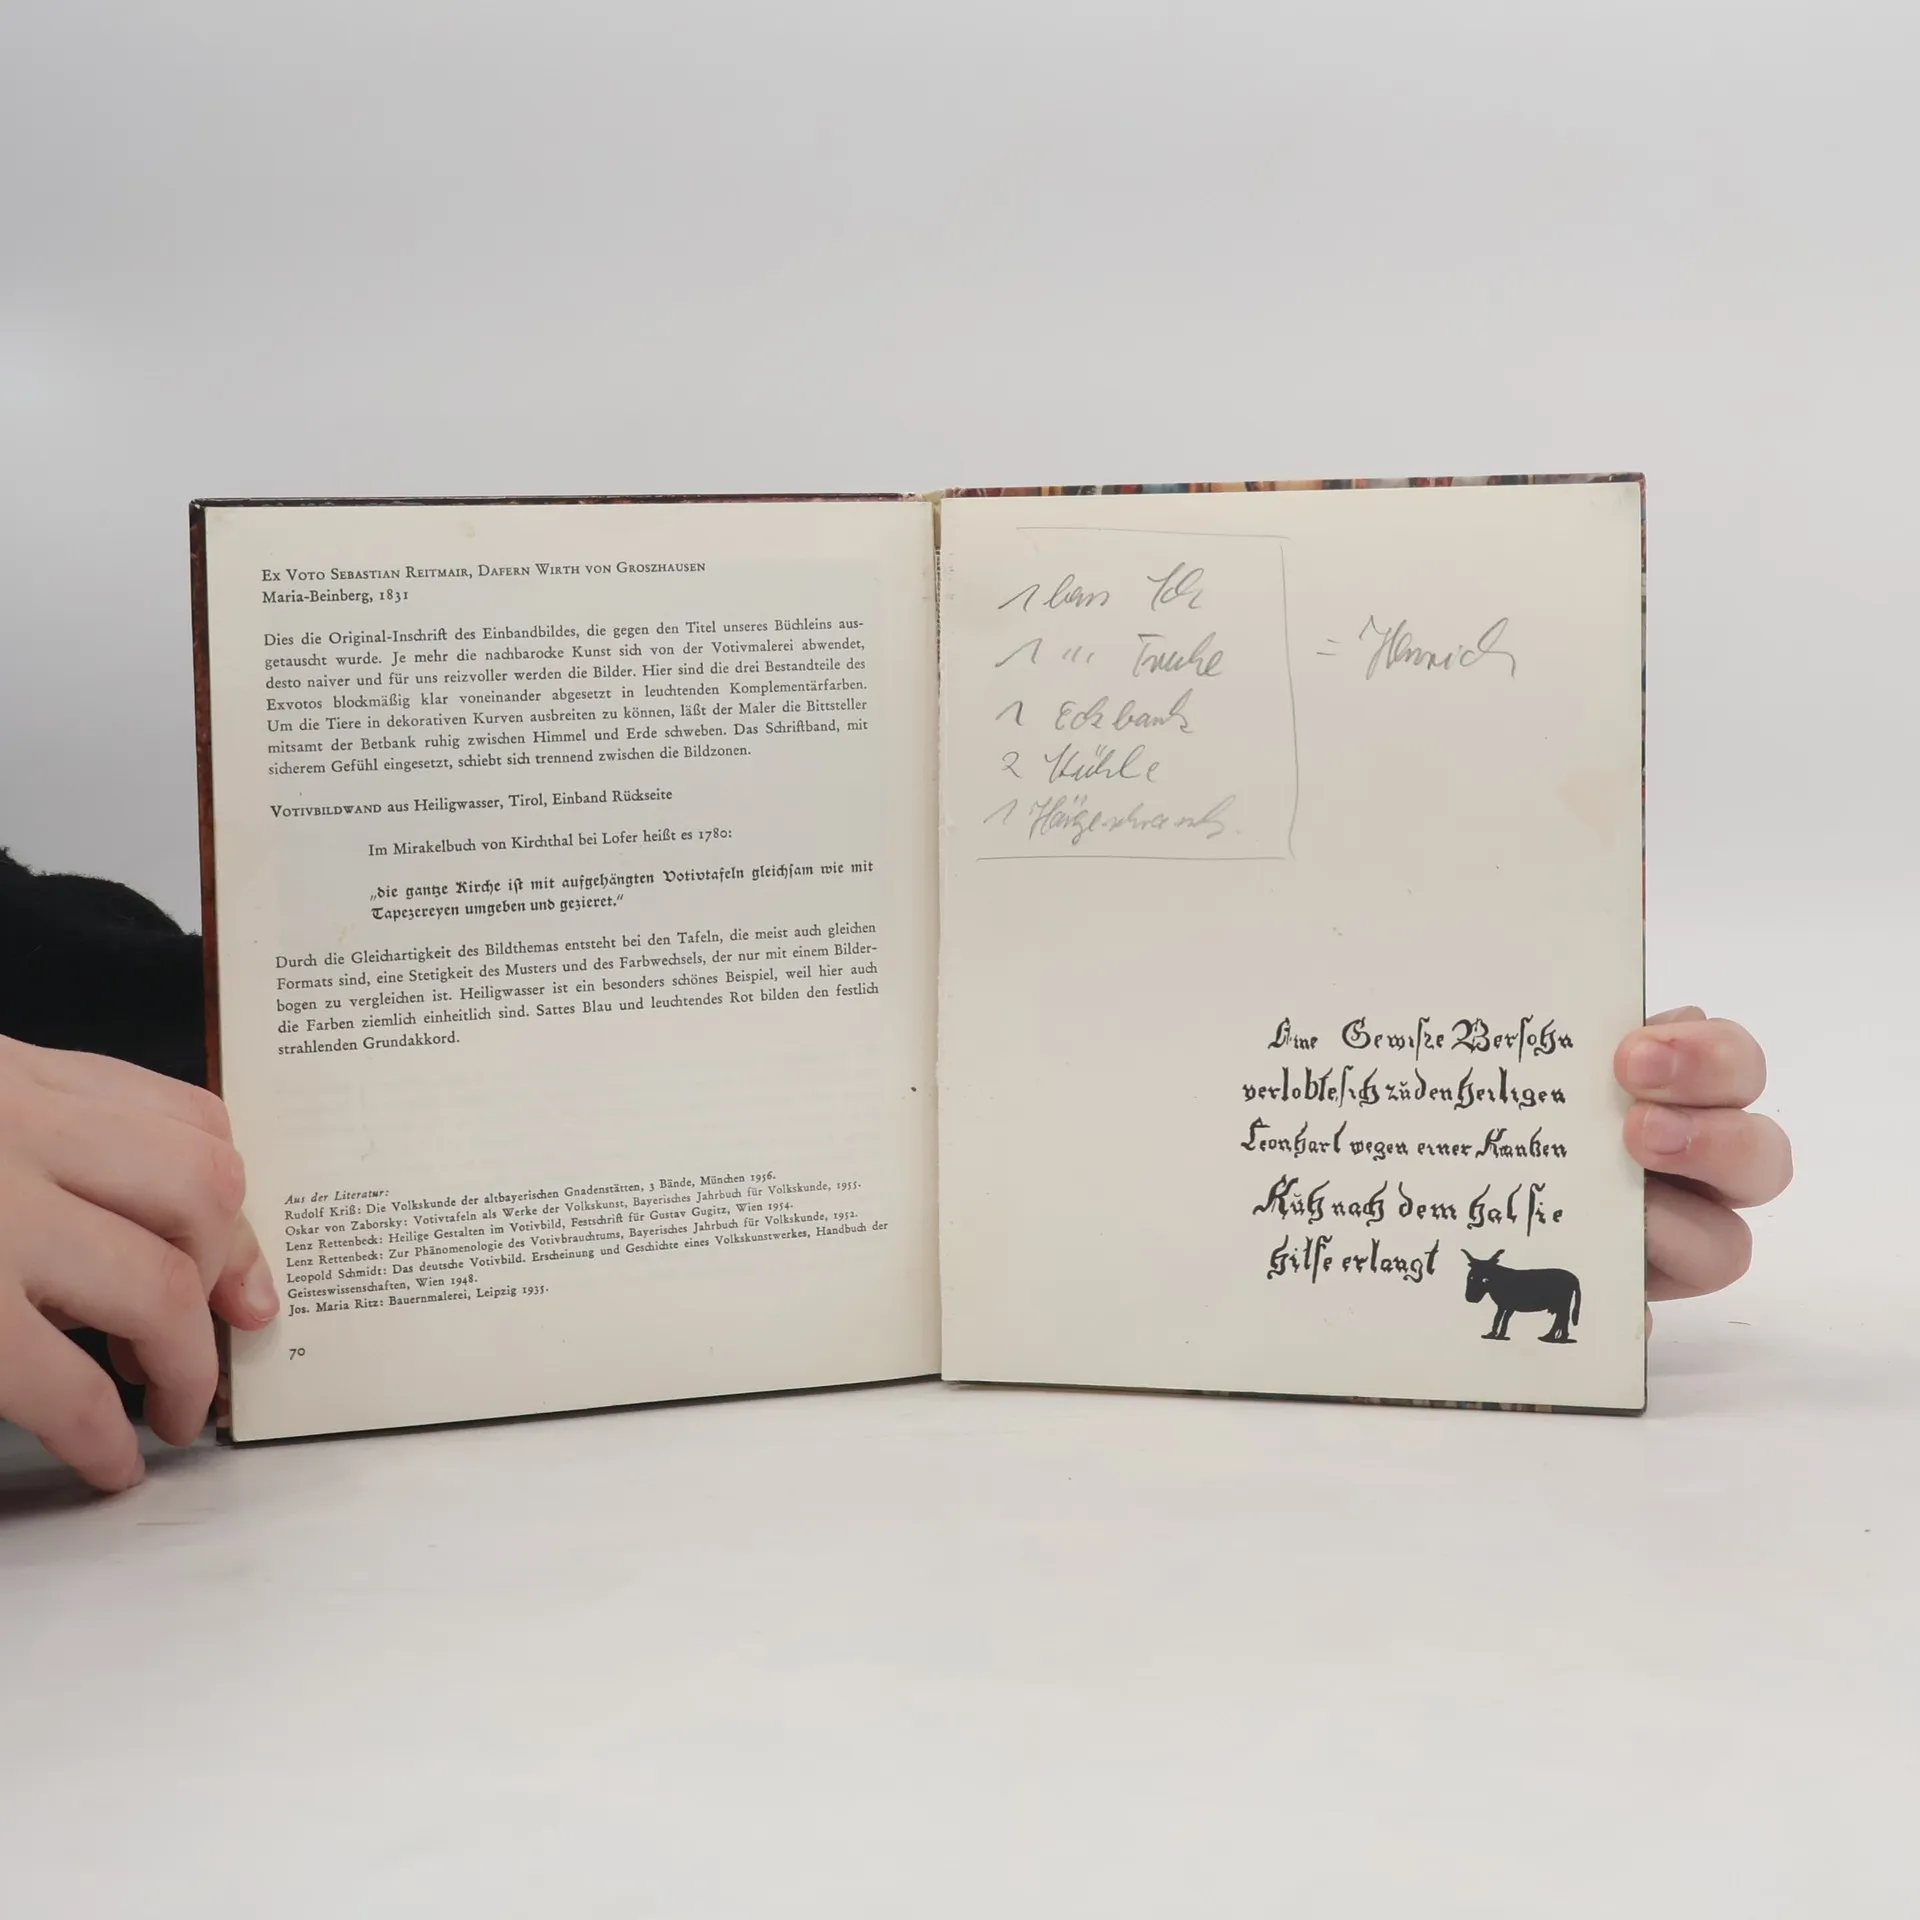 Ex Voto Sebastian Reitmair, Dafern Wirth von Groszhausen
Maria-Beinberg, 1831
Dies die Original-Inschrift des Einbandbildes, die gegen den Titel unseres Büchleins aus-
getauscht wurde. Je mehr die nachbarocke Kunst sich von der Votivmalerei abwendet,
desto naiver und für uns reizvoller werden die Bilder. Hier sind die drei Bestandteile des
Exvotos blockmäßig klar voneinander abgesetzt in leuchtenden Komplementärfarben.
Um die Tiere in dekorativen Kurven ausbreiten zu können, läßt der Maler die Bittsteller
mitsamt der Betbank ruhig zwischen Himmel und Erde schweben. Das Schriftband, mit
sicherem Gefühl eingesetzt, schiebt sich trennend zwischen die Bildzonen.
Votivbildwand aus Heiligwasser, Tirol, Einband Rückseite
Im Mirakelbuch von Kirchthal bei Lofer heißt es 1780:
„die gantze Kirche ist mit aufgehängten Votivtafeln gleichsam wie mit
Tapezereyen umgeben und gezieret.“
Durch die Gleichartigkeit des Bildthemas entsteht bei den Tafeln, die meist auch gleichen
Formats sind, eine Stetigkeit des Musters und des Farbwechsels, der nur mit einem Bilder-
bogen zu vergleichen ist. Heiligwasser ist ein besonders schönes Beispiel, weil hier auch
die Farben ziemlich einheitlich sind. Sattes Blau und leuchtendes Rot bilden den festlich
strahlenden Grundakkord.
Aus der Literatur:
Rudolf Kriß: Die Volkskunde der altbayerischen Gnadenstätten, 3 Bände, München 1956.
Oskar von Zaborsky: Votivtafeln als Werke der Volkskunst, Bayerisches Jahrbuch für Volkskunde, 1955.
Lenz Rettenbeck: Heilige Gestalten im Votivbild, Festschrift für Gustav Gugitz, Wien 1954.
Lenz Rettenbeck: Zur Phänomenologie des Votivbrauchtums, Bayerisches Jahrbuch für Volkskunde, 1952.
Leopold Schmidt: Das deutsche Votivbild. Erscheinung und Geschichte eines Volkskunstwerkes, Handbuch der
Geisteswissenschaften, Wien 1948.
Jos. Maria Ritz: Bauernmalerei, Leipzig 1935.
70
1
1 " Truhe
1 Eckbank
2 Stühle
1
=
Eine Gewisze Bersohn
verlobte sich zŭ den heiligen
Leonhart wegen einer Kranken
Kŭh nach dem hat sie
hilfe erlangt